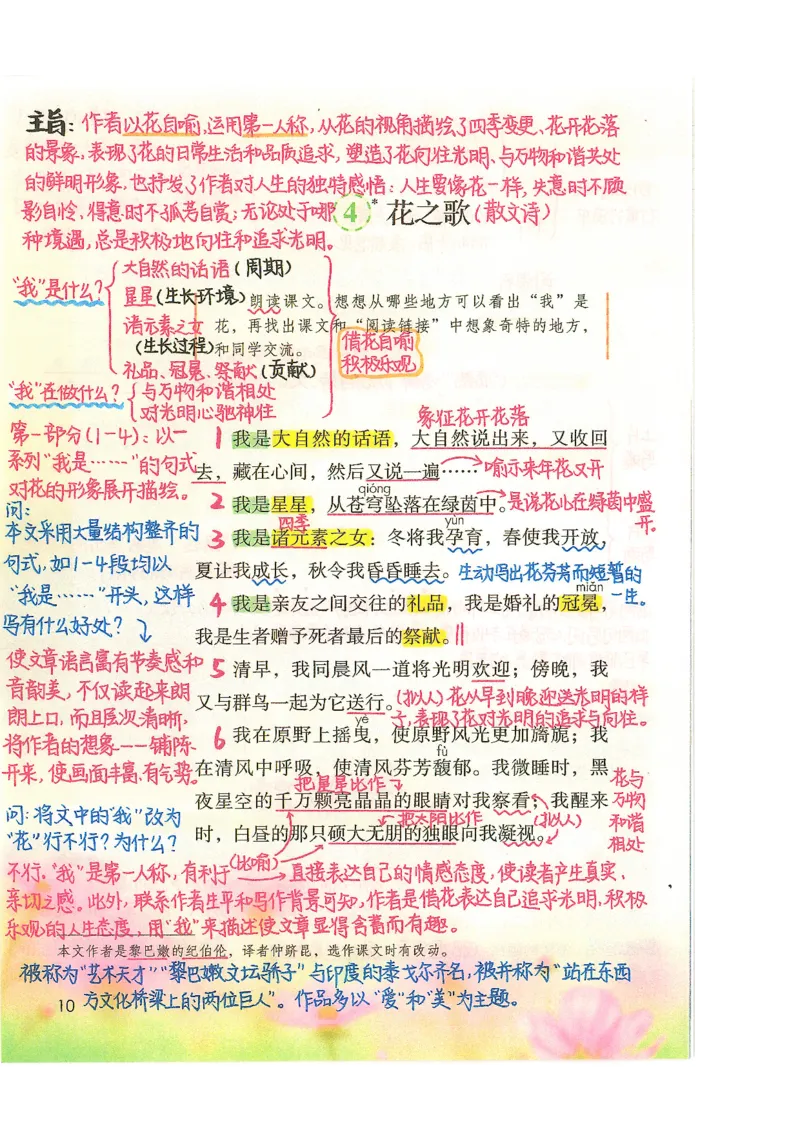 主旨：作者以花自喻，运用第一人称，从花的视角描绘了四季变更、花开花落
的景象，表现了花的日常生活和品质追求，塑造了花向往光明、与万物和谐共处
的鲜明形象，也抒发了作者对人生的独特感悟：人生要像花一样，失意时不顾
影自怜，得意时不孤芳自赏；无论处于哪
种境遇，总是积极地向往和追求光明。
4* 花之歌（散文诗）
“我”是什么？
大自然的话语（周期）
星星（生长环境）
诸元素之女
（生长过程）
礼品、冠冕、祭献（贡献）
“我”在做什么？
与万物和谐相处
对光明心驰神往
借花自喻
积极乐观
朗读课文。想想从哪些地方可以看出“我”是
花，再找出课文和“阅读链接”中想象奇特的地方，
和同学交流。
第一部分（1-4）：以一
系列“我是……”的句式
对花的形象展开描绘。
问：
本文采用大量结构整齐的
句式，如1-4段均以
“我是……”开头，这样
写有什么好处？
使文章语言富有节奏感和
音韵美，不仅读起来朗
朗上口，而且层次清晰，
将作者的想象一一铺陈
开来，使画面丰富，有气势。
象征花开花落
1 我是大自然的话语，大自然说出来，又收回
去，藏在心间，然后又说一遍……
喻示来年花又开
qióng
2 我是星星，从苍穹坠落在绿茵中。
是说花儿在绿茵中盛
开。
四季
yùn
3 我是诸元素之女：冬将我孕育，春使我开放，
夏让我成长，秋令我昏昏睡去。
生动写出花芬芳而短暂的
一生。
miǎn
4 我是亲友之间交往的礼品，我是婚礼的冠冕，
我是生者赠予死者最后的祭献。‖
5 清早，我同晨风一道将光明欢迎；傍晚，我
又与群鸟一起为它送行。
（拟人）花从早到晚迎送光明的样
子，表现了花对光明的追求与向往。
yè
6 我在原野上摇曳，使原野风光更加旖旎；我
fù
在清风中呼吸，使清风芬芳馥郁。我微睡时，黑
把星星比作
夜星空的千万颗亮晶晶的眼睛对我察看；我醒来
把太阳比作
（拟人）
时，白昼的那只硕大无朋的独眼向我凝视。
花与
万物
和谐
相处
（比喻）
问：将文中的“我”改为
“花”行不行？为什么？
不行。“我”是第一人称，有利于直接表达自己的情感态度，使读者产生真实、
亲切之感。此外，联系作者生平和写作背景可知，作者是借花表达自己追求光明、积极
乐观的人生态度，用“我”来描述使文章显得含蓄而有趣。
本文作者是黎巴嫩的纪伯伦，译者仲跻昆，选作课文时有改动。
被称为“艺术天才”“黎巴嫩文坛骄子”与印度的泰戈尔齐名，被并称为“站在东西
方文化桥梁上的两位巨人”。作品多以“爱”和“美”为主题。
10